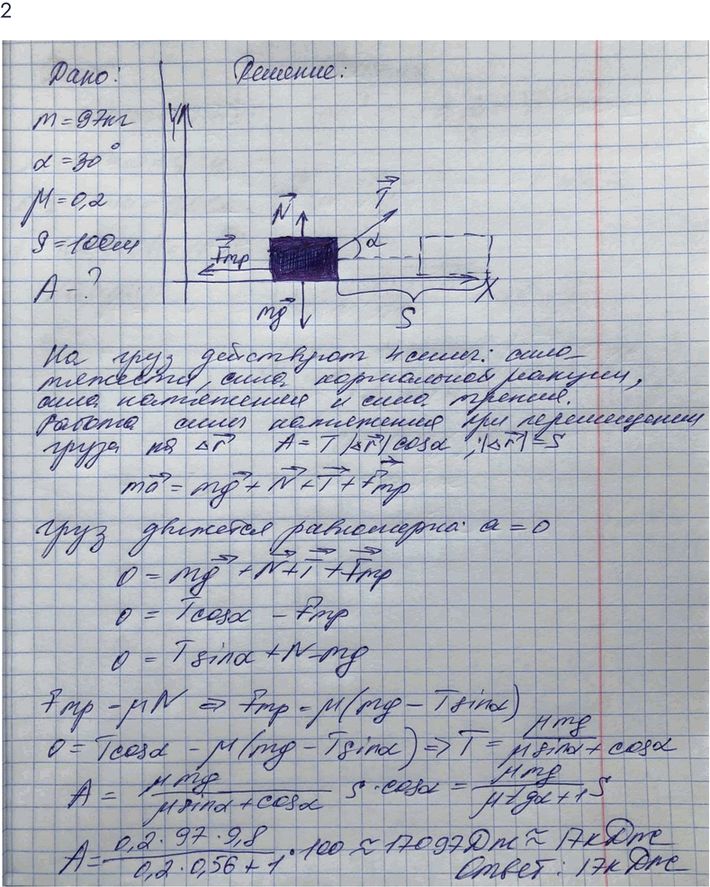 2
Дано: Решение:
m = 97кг
α = 30°
μ = 0,2
S = 100м
A - ?
Y
N⃗
T⃗
α
F⃗тр
mg⃗
S
X
На груз действуют 4 силы: сила
тяжести, сила нормальной реакции,
сила натяжения и сила трения.
Работа силы натяжения при перемещении
груза на Δr⃗ A = T|Δr⃗|cosα ; |Δr⃗| = S
ma⃗ = mg⃗ + N⃗ + T⃗ + F⃗тр
Груз движется равномерно: a = 0
0 = mg⃗ + N⃗ + T⃗ + F⃗тр
0 = Tcosα - Fтр
0 = Tsinα + N - mg
Fтр = μN ⇒ Fтр = μ(mg - Tsinα)
0 = Tcosα - μ(mg - Tsinα) ⇒ T = μmg / (μsinα + cosα)
A = μmg / (μsinα + cosα) S · cosα = μmg / (μtgα + 1) S
A = (0,2 · 97 · 9,8) / (0,2 · 0,56 + 1) · 100 ≈ 17097Дж ≈ 17кДж
Ответ: 17кДж